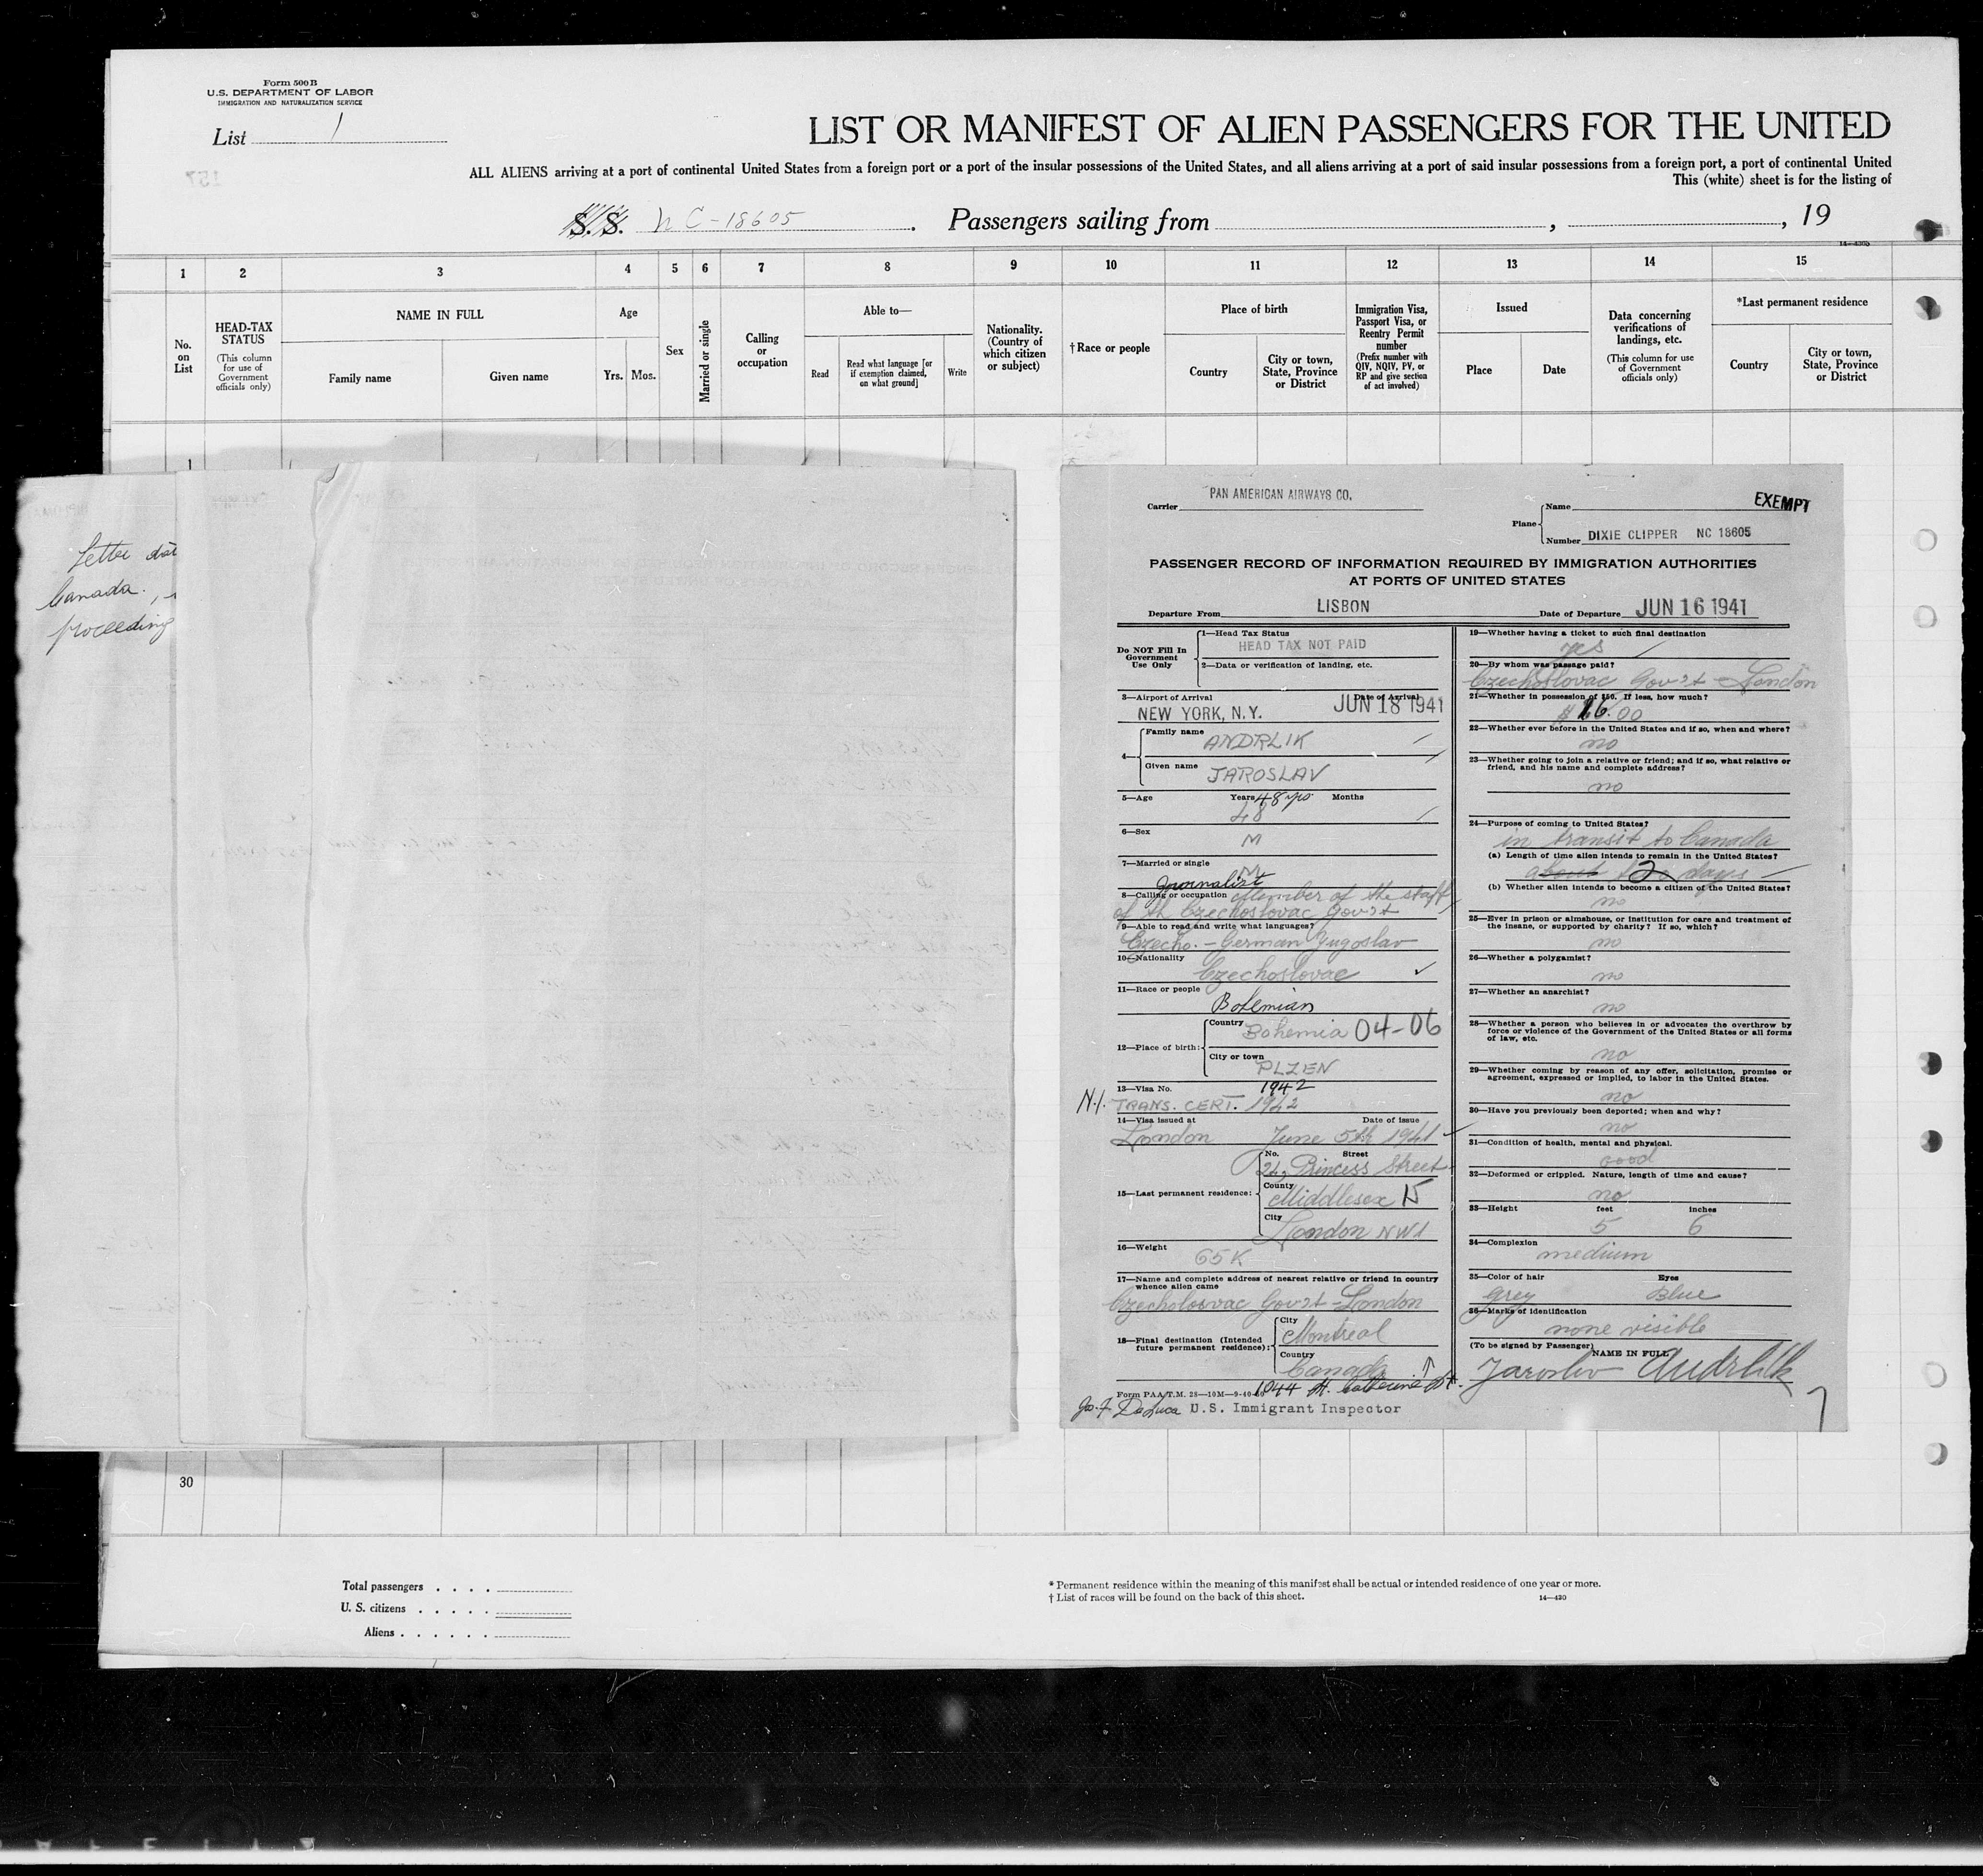 Form 500 B
U.S. DEPARTMENT OF LABOR
IMMIGRATION AND NATURALIZATION SERVICE
List 1
LIST OR MANIFEST OF ALIEN PASSENGERS FOR THE UNITED
ALL ALIENS arriving at a port of continental United States from a foreign port or a port of the insular possessions of the United States, and all aliens arriving at a port of said insular possessions from a foreign port, a port of continental United
This (white) sheet is for the listing of
157
S.S. NC-18605. Passengers sailing from , , 19
14—430
1 2 3 4 5 6 7 8 9 10 11 12 13 14 15
No. on List
HEAD-TAX STATUS
(This column for use of Government officials only)
NAME IN FULL
Family name
Given name
Age
Yrs. Mos.
Sex
Married or single
Calling or occupation
Able to—
Read
Read what language [or if exemption claimed, on what ground]
Write
Nationality. (Country of which citizen or subject)
†Race or people
Place of birth
Country
City or town, State, Province or District
Immigration Visa, Passport Visa, or Reentry Permit number
(Prefix number with QIV, NQIV, PV, or RP and give section of act involved)
Issued
Place
Date
Data concerning verifications of landings, etc.
(This column for use of Government officials only)
*Last permanent residence
Country
City or town, State, Province or District
1
Letter dat
Canada.,
proceeding
Carrier PAN AMERICAN AIRWAYS CO.
EXEMPT
Plane
Name
Number DIXIE CLIPPER NC 18605
PASSENGER RECORD OF INFORMATION REQUIRED BY IMMIGRATION AUTHORITIES
AT PORTS OF UNITED STATES
Departure From LISBON Date of Departure JUN 16 1941
Do NOT Fill In
Government
Use Only
1—Head Tax Status
HEAD TAX NOT PAID
2—Data or verification of landing, etc.
3—Airport of Arrival Date of Arrival
NEW YORK, N.Y. JUN 18 1941
4—
Family name
ANDRLIK
Given name
JAROSLAV
5—Age Years 48 yrs Months
48
6—Sex
M
7—Married or single
M
Journalist
8—Calling or occupation Member of the staff
of th Czechoslovac Gov't
9—Able to read and write what languages?
Czecho. - German Yugoslav
10—Nationality
Czechoslovac
11—Race or people
Bohemian
12—Place of birth:
Country
Bohemia 04-06
City or town
PLZEN
13—Visa No. 1942
N.I. TRANS. CERT. 1942
14—Visa issued at Date of issue
London June 5th 1941
15—Last permanent residence:
No. Street
24, Princess Street
County
Middlesex
City
London NW1
16—Weight
65K
17—Name and complete address of nearest relative or friend in country
whence alien came
Czecholosvac Gov't - London
18—Final destination (Intended
future permanent residence):
City
Montreal
Country
Canada
1044 St. Catherine St.
Form PAA/T.M. 28—10M—9-40
Jo. F. DeLuca U.S. Immigrant Inspector
19—Whether having a ticket to such final destination
yes
20—By whom was passage paid?
Czechoslovac Gov't - London
21—Whether in possession of $50. If less, how much?
$16.00
22—Whether ever before in the United States and if so, when and where?
no
23—Whether going to join a relative or friend; and if so, what relative or
friend, and his name and complete address?
no
24—Purpose of coming to United States?
in transit to Canada
(a) Length of time alien intends to remain in the United States?
about 2 days
(b) Whether alien intends to become a citizen of the United States?
no
25—Ever in prison or almshouse, or institution for care and treatment of
the insane, or supported by charity? If so, which?
no
26—Whether a polygamist?
no
27—Whether an anarchist?
no
28—Whether a person who believes in or advocates the overthrow by
force or violence of the Government of the United States or all forms
of law, etc.
no
29—Whether coming by reason of any offer, solicitation, promise or
agreement, expressed or implied, to labor in the United States.
no
30—Have you previously been deported; when and why?
no
31—Condition of health, mental and physical.
good
32—Deformed or crippled. Nature, length of time and cause?
no
33—Height feet inches
5 6
34—Complexion
medium
35—Color of hair Eyes
Grey Blue
36—Marks of identification
none visible
(To be signed by Passenger)
NAME IN FULL
Jaroslav Andrlik
7
30
Total passengers . . . .
U. S. citizens . . . . .
Aliens . . . . . .
* Permanent residence within the meaning of this manifest shall be actual or intended residence of one year or more.
† List of races will be found on the back of this sheet.
14—430